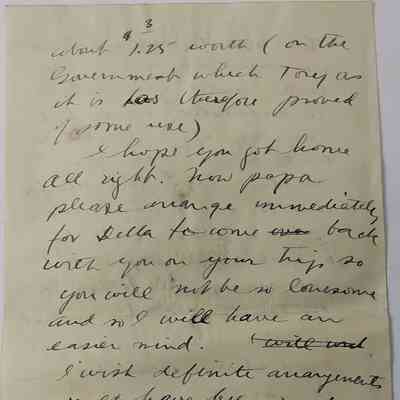 3
about $1.25 worth (on the
Government which Tory as
it is has therefore proved
of some use)
I hope you got home
all right. Now papa
please arrange immediately
for Della to come back
with you on your trip so
you will not be so lonesome
and so I will have an
easier mind. will
I wish definite arrangements